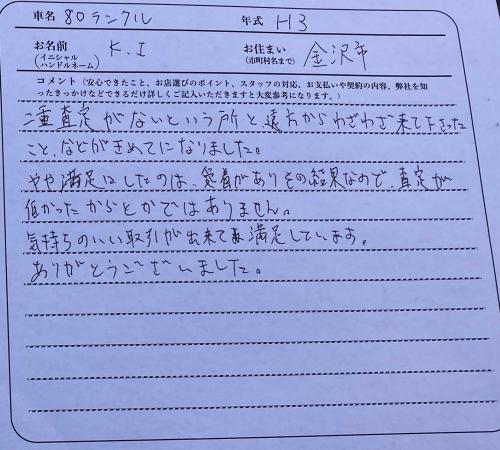 車名 80ランクル 年式 H3
お名前 K.I お住まい 金沢市
(イニシャル ハンドルネーム) (市町村名まで)
コメント(安心できたこと、お店選びのポイント、スタッフの対応、お支払いや契約の内容、弊社を知
ったきっかけなどできるだけ詳しくご記入いただきますと大変参考になります。)
二重査定がないという所と、遠方からわざわざ来て下さった
こと、などがきめてになりました。
やや満足にしたのは、愛着がありその結果なので、査定が
低かったからとかではありません。
気持ちのいい取引が出来て満足しています。
ありがとうございました。